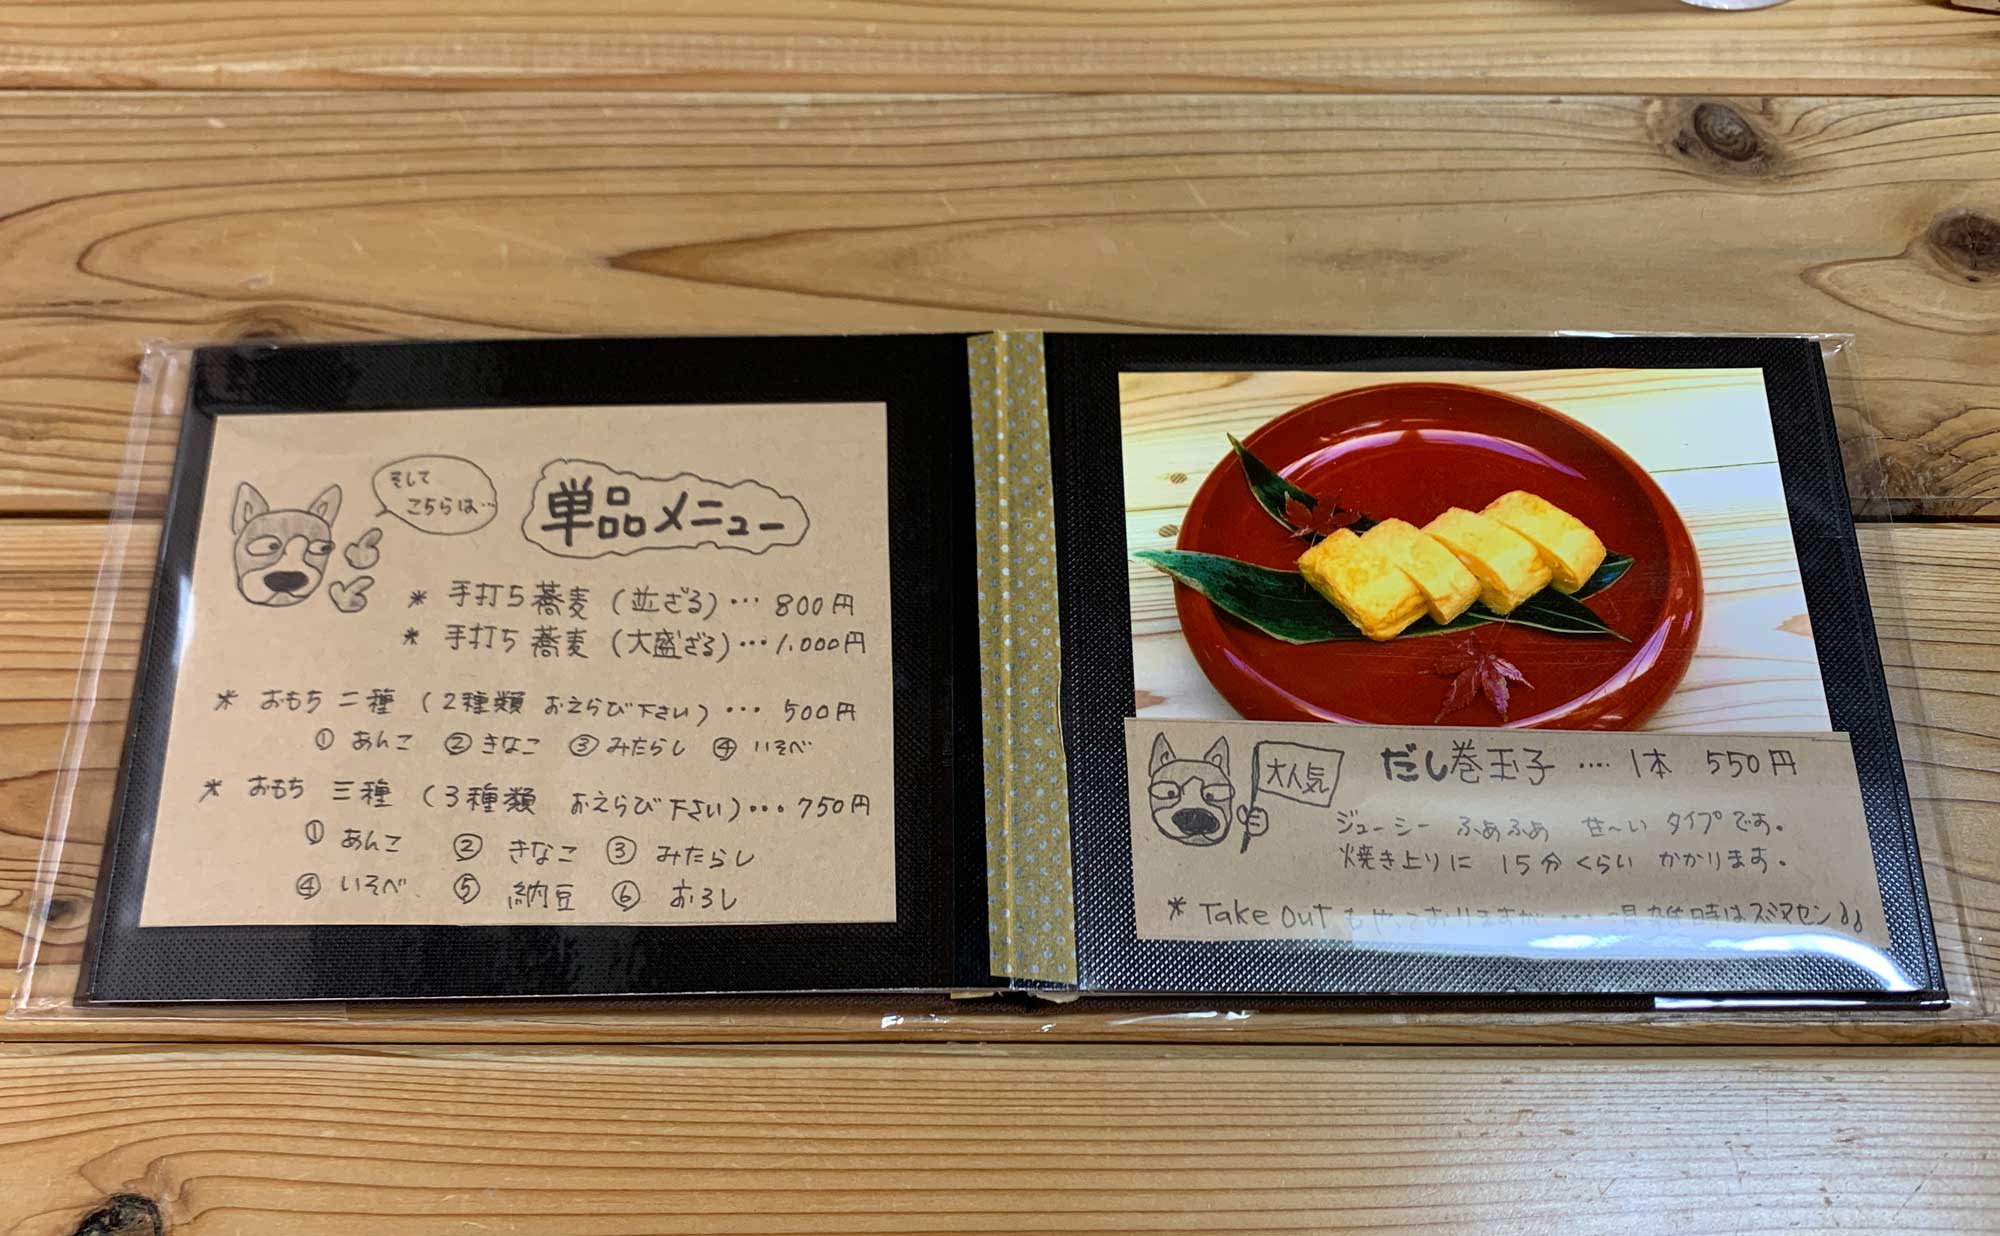 そして
こちらは…
単品メニュー
* 手打ち蕎麦 (並ざる)… 800円
* 手打ち蕎麦 (大盛ざる)… 1.000円
* おもち 二種 (2種類 おえらび下さい)… 500円
① あんこ ② きなこ ③ みたらし ④ いそべ
* おもち 三種 (3種類 おえらび下さい)… 750円
① あんこ ② きなこ ③ みたらし
④ いそべ ⑤ 納豆 ⑥ おろし
大人気
だし巻玉子 …. 1本 550円
ジューシー ふあふあ 甘〜い タイプです。
焼き上りに 15分くらい かかります。
* Take Out もやっておりますが… 混雑時はスミマセン